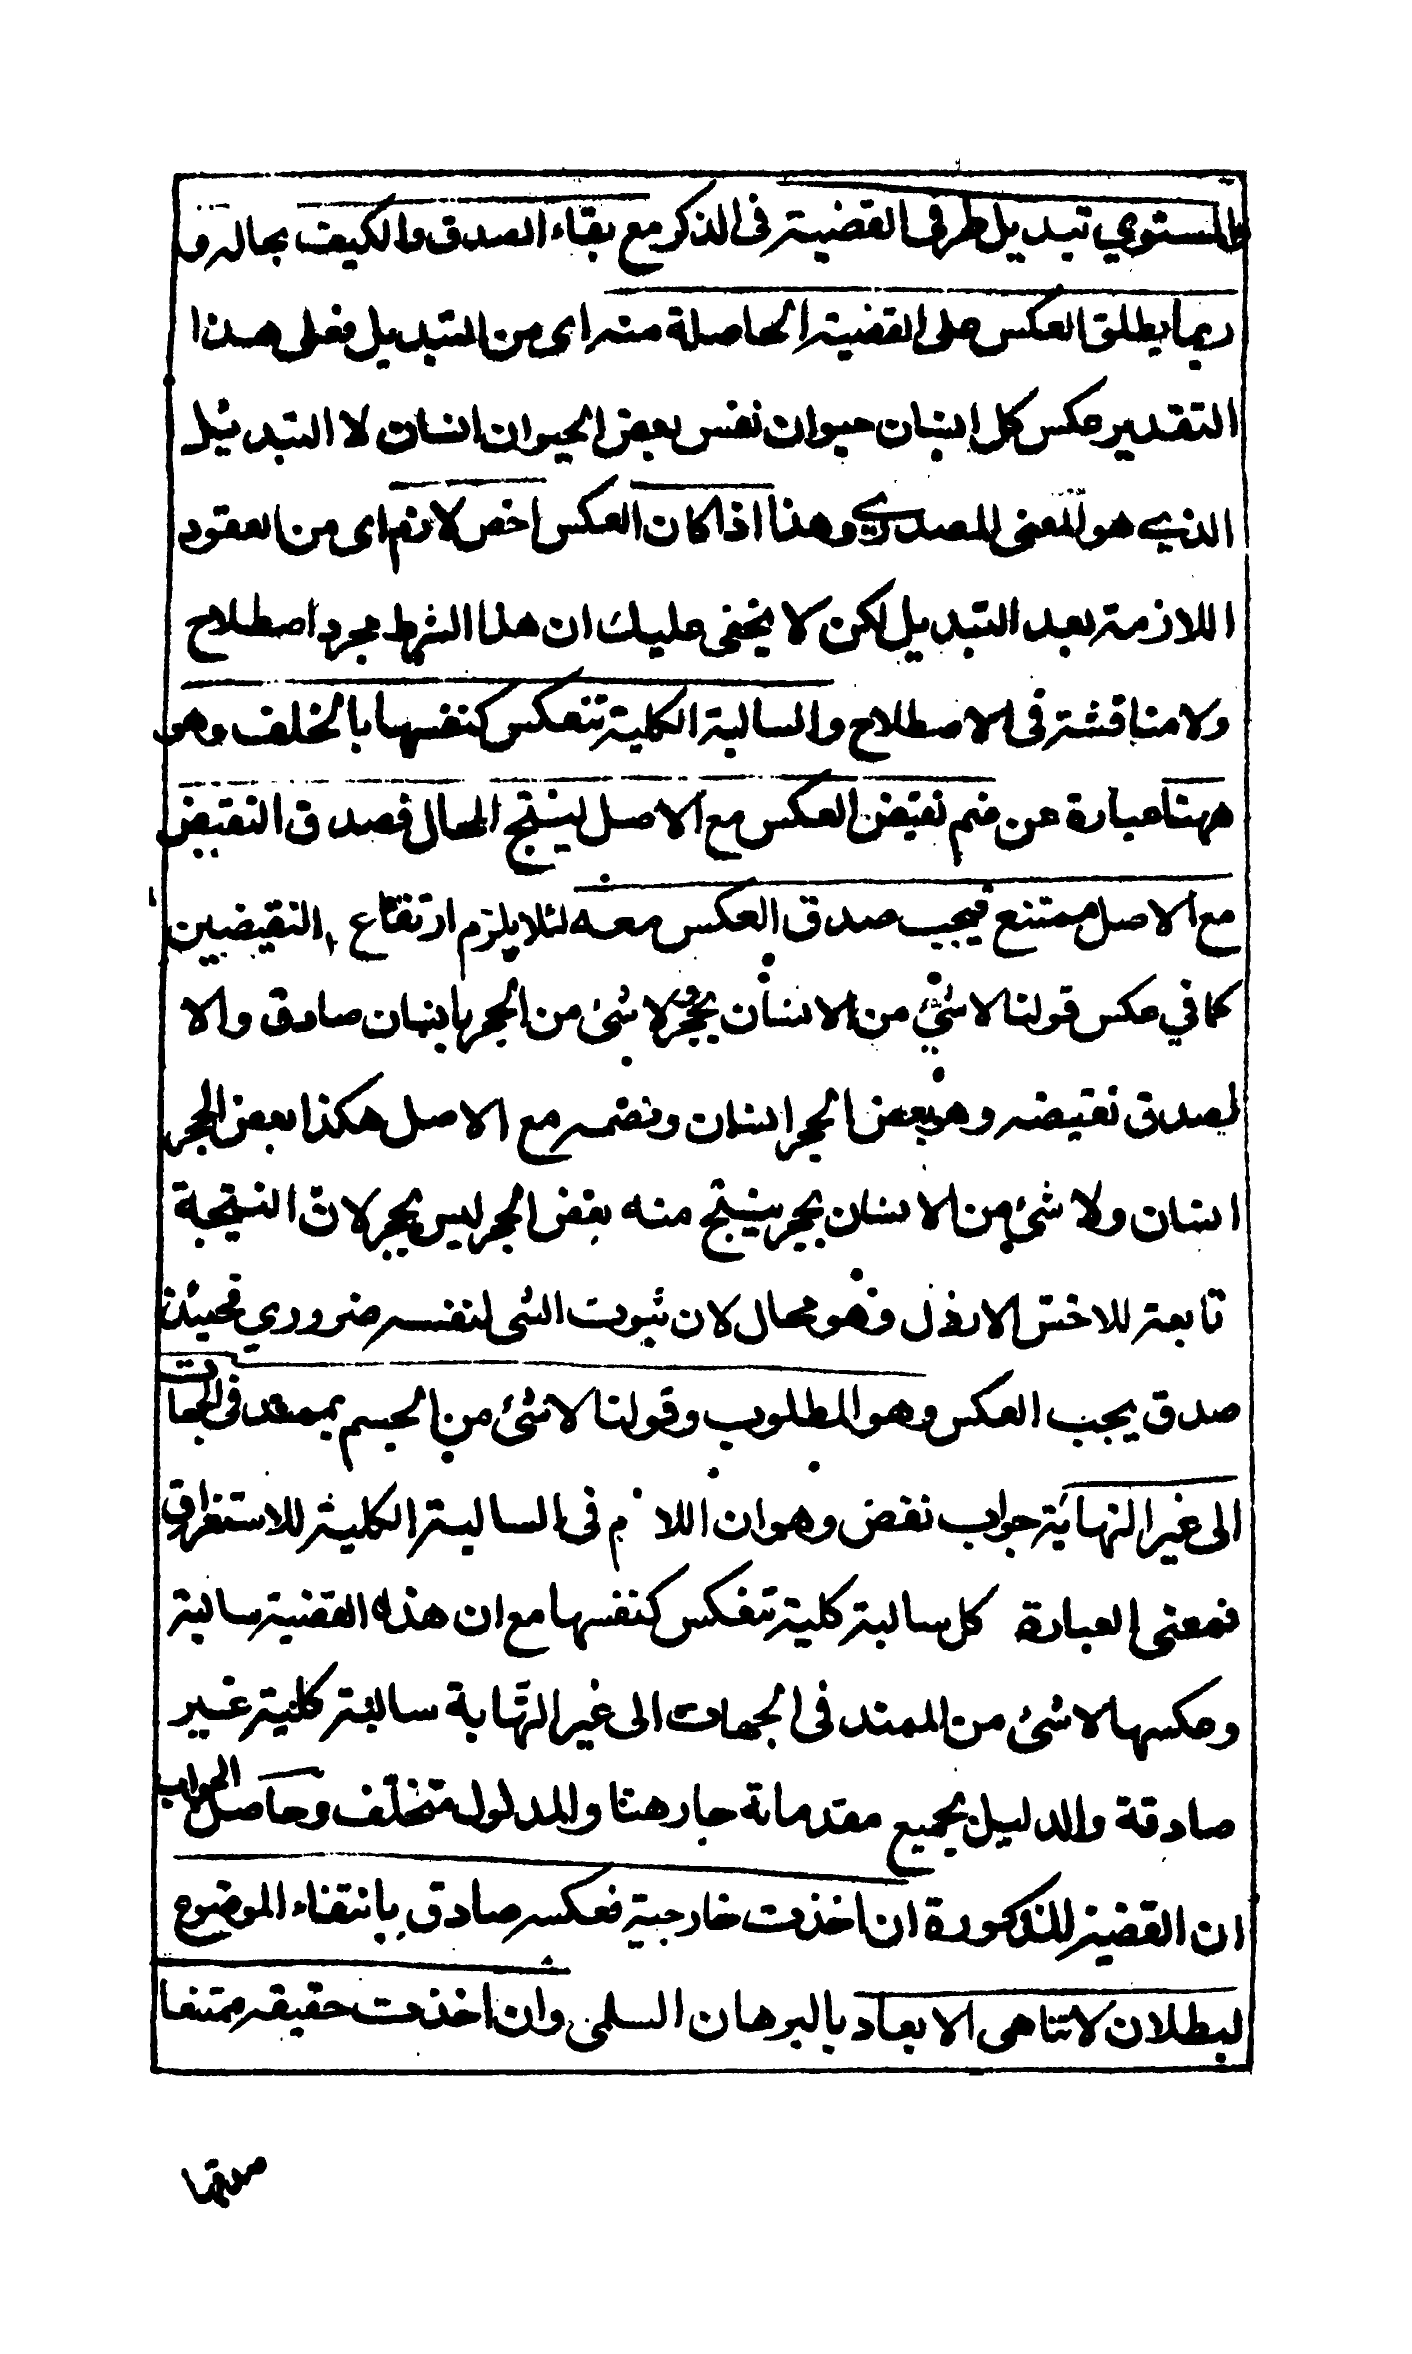 والمستوي تبديل طرفي القضية في الذكر مع بقاء الصدق والكيف بحاله و
ربما يطلق العكس على القضية الحاصلة منه اى من التبديل فعلى هذا
التقدير عكس كل انسان حيوان نفس بعض الحيوان انسان لا التبديل
الذي هو المعنى المصدري وهذا اذا كان العكس اخص لازم اى من العقود
اللازمة بعد التبديل لكن لا يخفى عليك ان هذا الشرط مجرد اصطلاح
ولا مناقشة في الاصطلاح والسالبة الكلية تنعكس كنفسها بالخلف وهو
ههنا عبارة عن ضم نقيض العكس مع الاصل لينتج المحال فصدق النقيض
مع الاصل ممتنع فيجب صدق العكس معه لئلا يلزم ارتفاع النقيضين
كما في عكس قولنا لا شئ من الانسان بحجر لا شئ من الحجر بانسان صادق والا
لصدق نقيضه وهو بعض الحجر انسان ونضمه مع الاصل هكذا بعض الحجر
انسان ولا شئ من الانسان بحجر ينتج منه بعض الحجر ليس بحجر لان النتيجة
تابعة للاخس الارذل وهو محال لان ثبوت الشى لنفسه ضروري فحينئذ
صدق يجب العكس وهو المطلوب وقولنا لا شئ من الجسم بممتد في الجهات
الى غير النهاية جواب نقض وهو ان اللازم فى السالبة الكلية للاستغراق
فمعنى العبارة كل سالبة كلية تنعكس كنفسها مع ان هذه القضية سالبة
وعكسها لا شئ من الممتد في الجهات الى غير النهاية سالبة كلية غير
صادقة والدليل بجميع مقدماته جار هنا والمدلول متخلف وحاصل الجواب
ان القضية المذكورة ان اخذت خارجية فعكسه صادق بانتفاء الموضوع
لبطلان لا تناهى الابعاد بالبرهان السلمى وان اخذت حقيقه ممتنفا